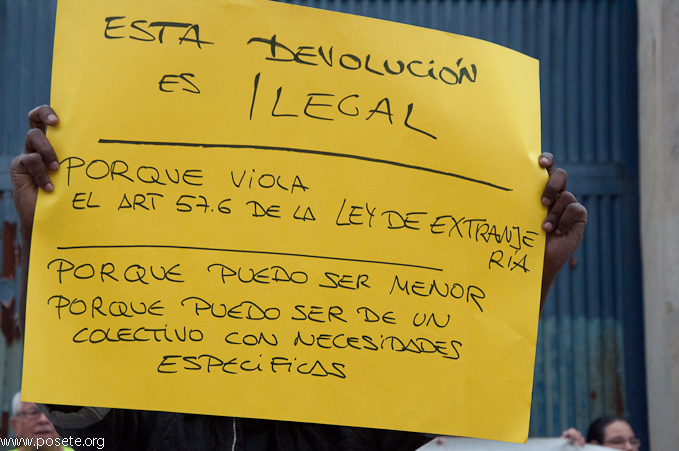 ESTA DEVOLUCIÓN
ES ILEGAL
PORQUE VIOLA
EL ART 57.6 DE LA LEY DE EXTRANJE
RIA
PORQUE PUEDO SER MENOR
PORQUE PUEDO SER DE UN
COLECTIVO CON NECESIDADES
ESPECIFICAS
www.posete.org